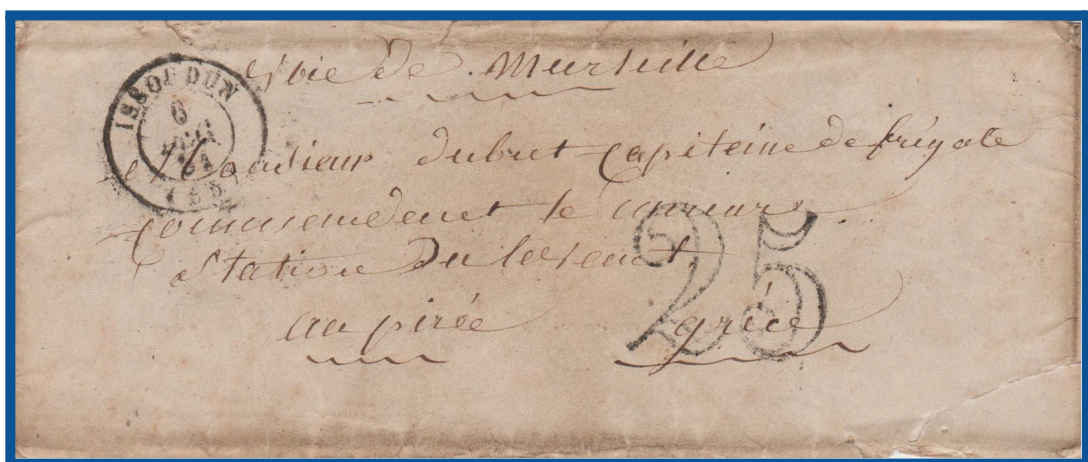 voie de Marseille
ISSOUDUN
6
Monsieur dubut capiteine de frégate
commendent le
Station du levent
au pirée grèce
25